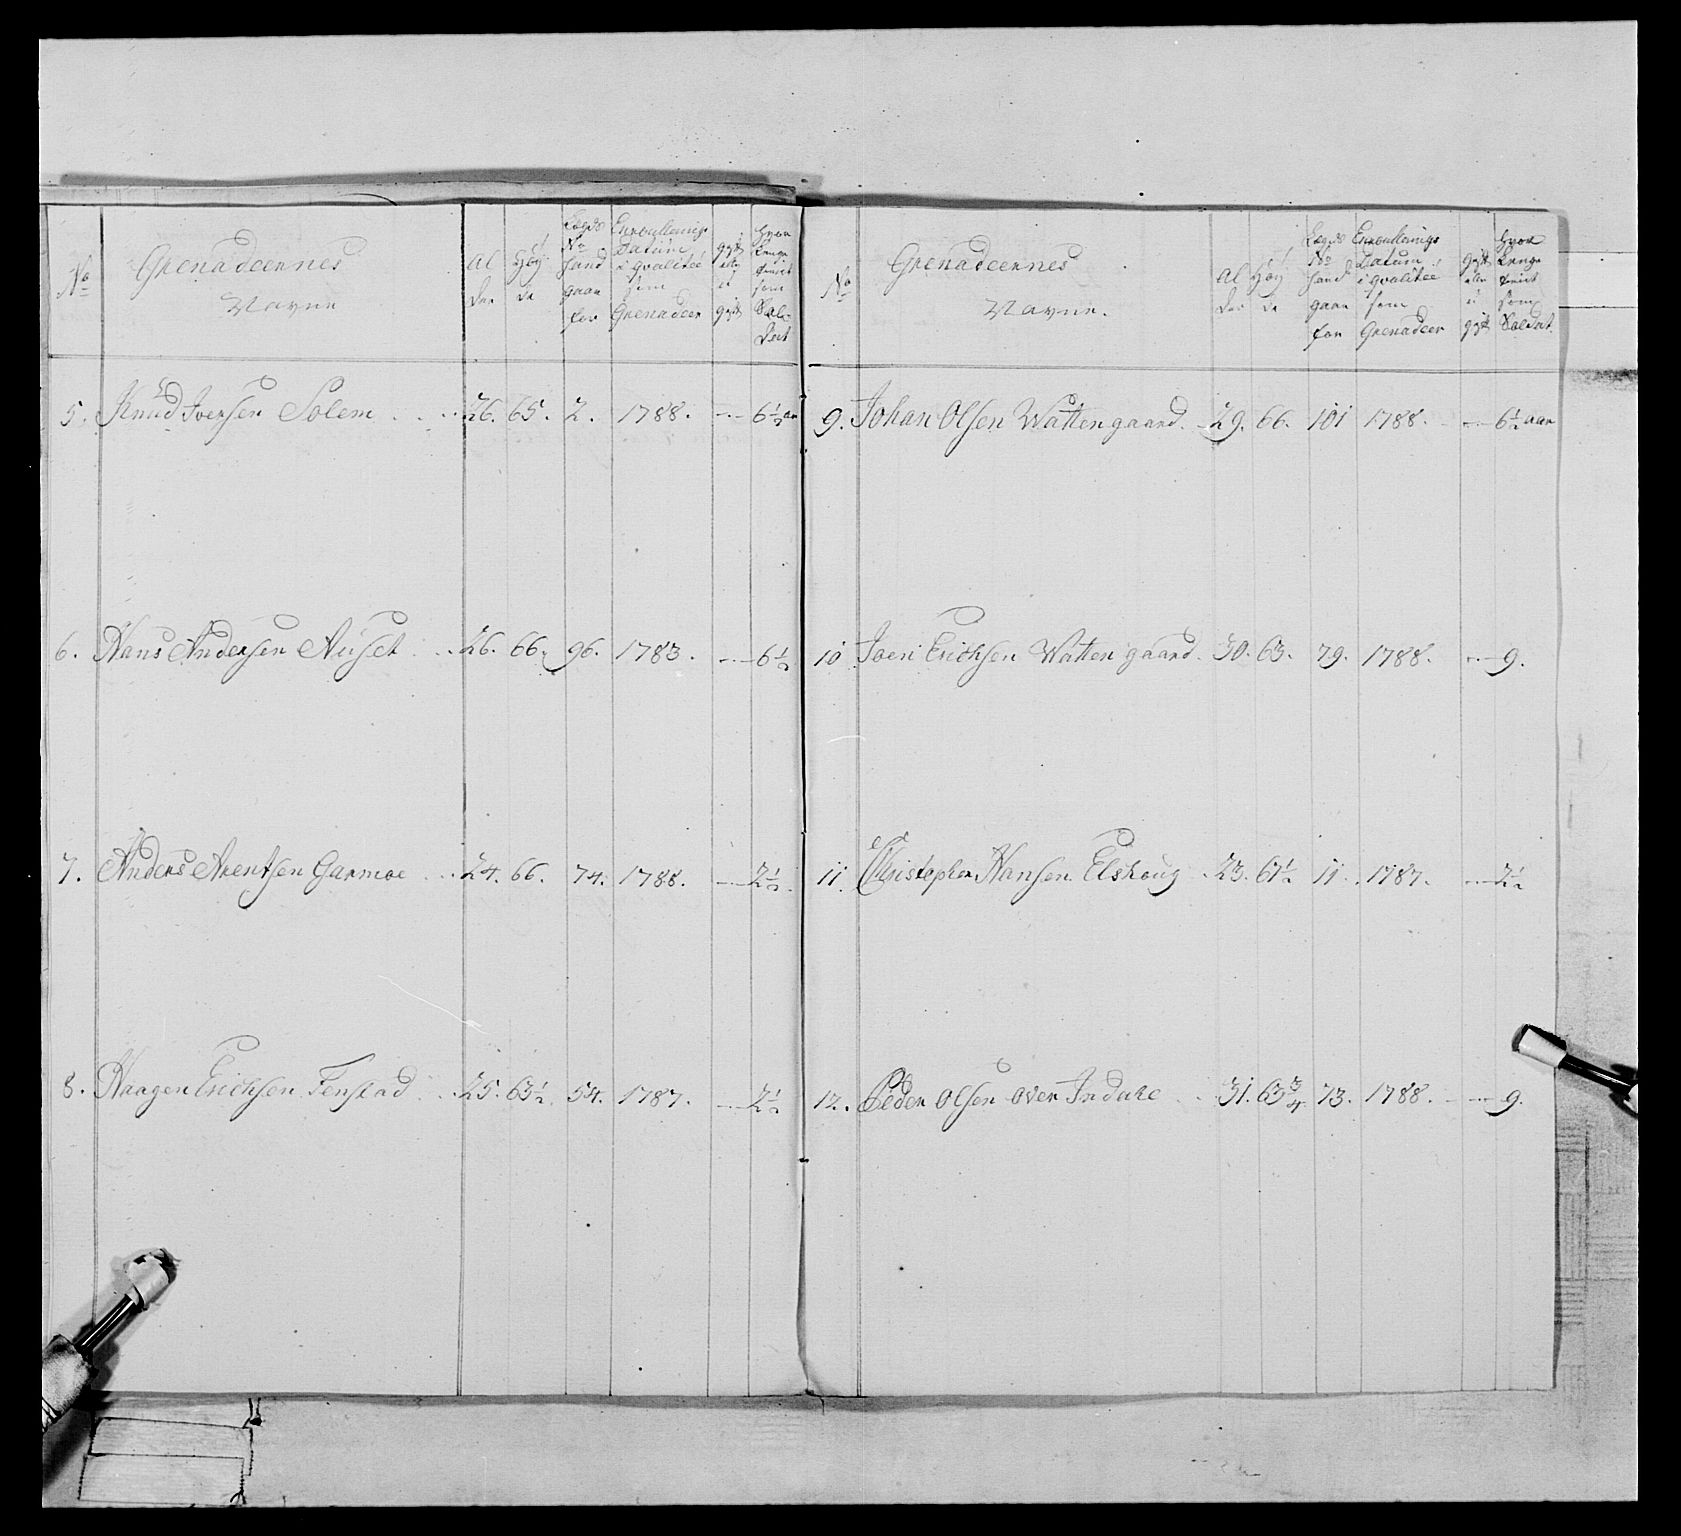 No
Grenadeernes
Navne
Al
der
Høy
de
Lægds
No
hand
gaar
for
Enroullerings
Datum
i qvalitee
som
Grenadeer
gift
eller
u
gift
hvor
lenge
tient
som
Sol-
dat
5. Knud Iversen Solem 26. 65. 2. 1788. 6 1/2 aar
6. Hans Andersen Auset 26. 66. 96. 1783. 6 1/2
7. Anders Arentsen Garmoe 24. 66. 74. 1788. 2 1/2
8. Haagen Erichsen Fenstad 25. 63 1/2 54. 1787. 2 1/2
No
Grenadeernes
Navne.
Al
der
Høy
de
Lægds
No
hand
gaar
for
Enroullerings
Datum
i qvalitee
som
Grenadeer
gift
eller
u
gift
hvor
lenge
tient
som
Soldat.
9. Johan Olsen Wattengaard. 29. 66. 101 1788. 6 1/2 aar
10 Joen Erichsen Wattengaard. 30. 63. 79. 1788. 9.
11. Christopher Hansen Elshoug 23. 61 1/2 11. 1787. 2 1/2
12. Peder Olsen over Indahe 31. 63 3/4 73. 1788. 9.